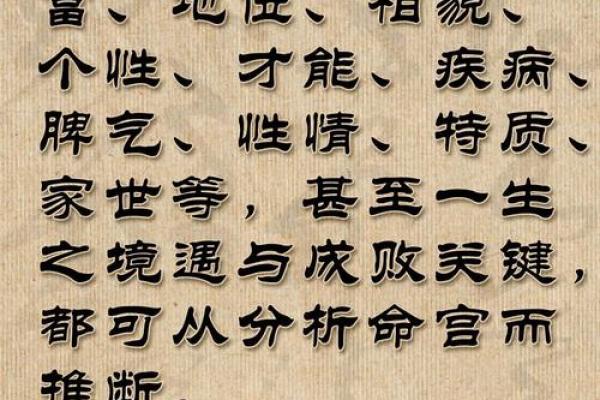 富、地位、相貌、
个性、才能、疾病、
脾气、性情、特质、
家世等，甚至一生
之境遇与成败关键，
都可从分析命宫而
推断。